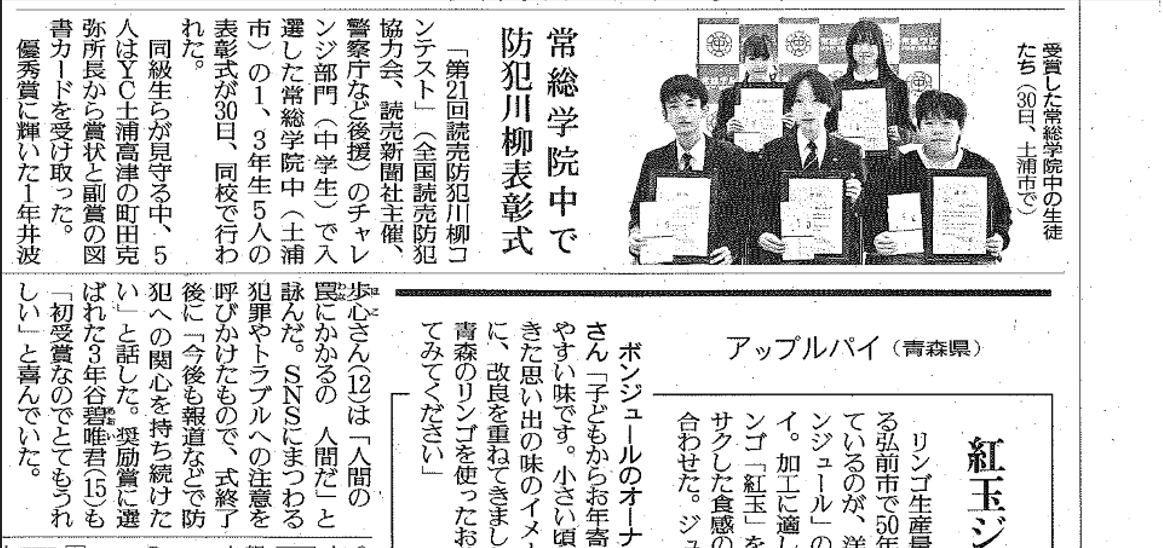 受賞した常総学院中の生徒
たち（30日、土浦市で）
常総学院中で
防犯川柳表彰式
「第21回読売防犯川柳コ
ンテスト」（全国読売防犯
協力会、読売新聞社主催、
警察庁など後援）のチャレ
ンジ部門（中学生）で入
選した常総学院中（土浦
市）の1、3年生5人の
表彰式が30日、同校で行わ
れた。
同級生らが見守る中、5
人はYC土浦高津の町田克
弥所長から賞状と副賞の図
書カードを受け取った。
優秀賞に輝いた1年井波
歩心さん(12)は「人間の
罠にかかるの　人間だ」と
詠んだ。SNSにまつわる
犯罪やトラブルへの注意を
呼びかけたもので、式終了
後に「今後も報道などで防
犯への関心を持ち続けた
い」と話した。奨励賞に選
ばれた3年谷碧唯君(15)も
「初受賞なのでとてもうれ
しい」と喜んでいた。
アップルパイ（青森県）
紅玉ジ
リンゴ生産量
る弘前市で50年
ているのが、洋
ンジュール」の
イ。加工に適し
ンゴ「紅玉」を
サクした食感の
合わせた。ジュ
ボンジュールのオーナ
さん「子どもからお年寄
やすい味です。小さい頃
きた思い出の味のイメ
に、改良を重ねてきまし
青森のリンゴを使ったお
てみてください」